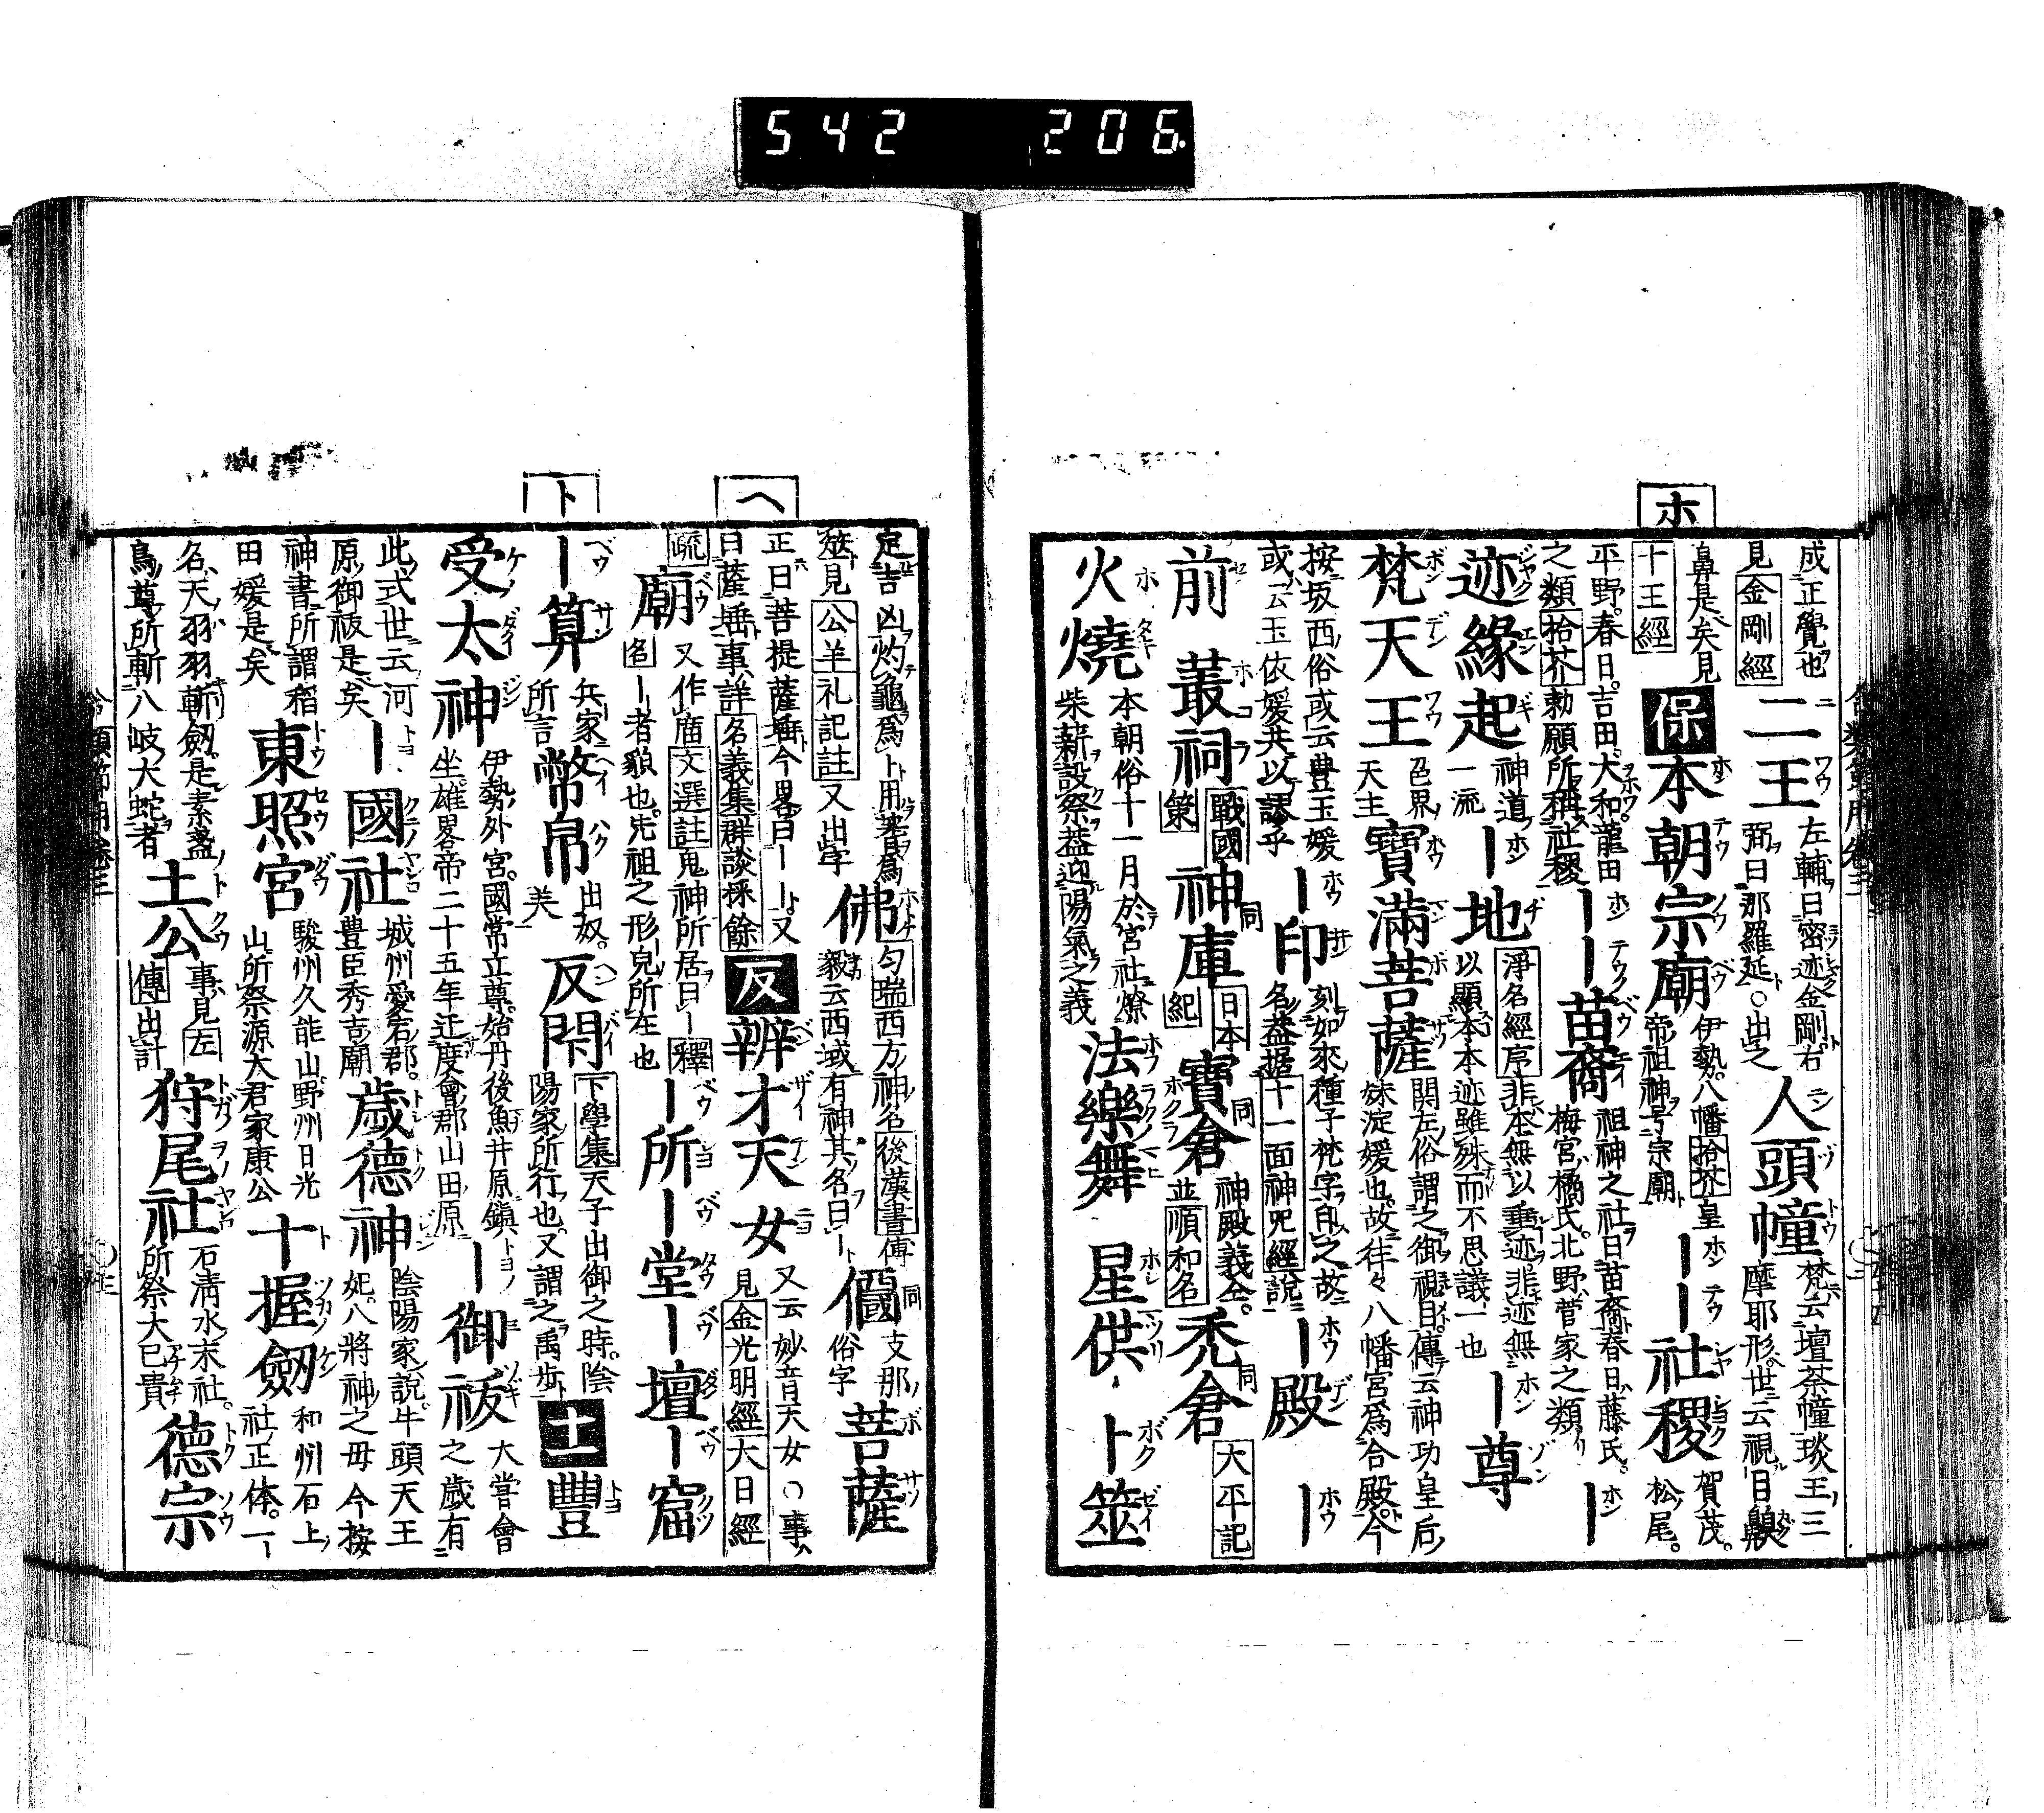 542 206
ホ
成正覺也
見金剛經
二王
左輔曰密迹金剛右
弼曰那羅延○出之
人頭幢
梵云壇荼幢琰王三
摩耶形世云視目嗅
鼻是矣見
十王經
保
本朝宗廟
伊勢八幡拾芥皇
帝祖神号宗廟
ーー社稷
賀茂
松尾
平野春日吉田大和龍田
之類拾芥勅願所稱社稷
ーー苗裔
祖神之社曰苗裔春日藤氏
梅宮橘氏北野菅家之類
ー
迹緣起
神道
一流
ー地
淨名經序非本無以垂迹非迹無
以顯本本迹雖殊而不思議一也
ー尊
梵天王
色界
天主
寶滿菩薩
関左俗謂之御視目傳云神功皇后
妹淀媛也故往々八幡宮為合殿今
按坂西俗或云豊玉媛
或云玉依媛共以謬乎
ー印
刻如來種子梵字印之故
名蓋据十一面神咒經說
ー殿
ー
前
叢祠
戰國
策
神庫
同
日本
紀
寶倉
同
神殿義仝
並順和名
禿倉
同
大平記
火燒
本朝俗十一月於宮社燎
柴薪設祭蓋迎陽氣之義
法樂舞
星供
卜筮
ヘ
ト
定吉凶灼龜為卜用蓍為
筮見公羊礼記註又出字
佛
勾瑞西方神名後漢書傅
毅云西域有神其名曰ー
儞
同
支那
俗字
菩薩
正曰菩提薩埵今畧曰ーー又
曰薩埵事詳名義集群談採餘
反
辨才天女
又云妙音天女○事
見金光明經大日經
疏
廟
又作庿文選註鬼神所居曰ー釋
名ー者貌也先祖之形皃所在也
ー所ー堂ー壇ー窟
ー算
兵家
所言
幣帛
出奴
美
反閇
下學集天子出御之時陰
陽家所行也又謂之禹步
土
豐
受太神
伊勢外宮國常立尊始丹後魚井原鎮
坐雄畧帝二十五年迁度會郡山田原
ー御祓
大甞會
之歲有
此式世云河
原御祓是矣
ー國社
城州愛宕郡
豊臣秀吉廟
歲德神
陰陽家說牛頭天王
妃八將神之母今按
神書所謂稻
田媛是矣
東照宮
駿州久能山野州日光
山所祭源大君家康公
十握劔
和州石上
社正体一ー
名天羽羽斬劔是素盞
烏尊所斬八岐大蛇者
土公
事見左
傳出計
狩尾社
石清水末社
所祭大已貴
德宗